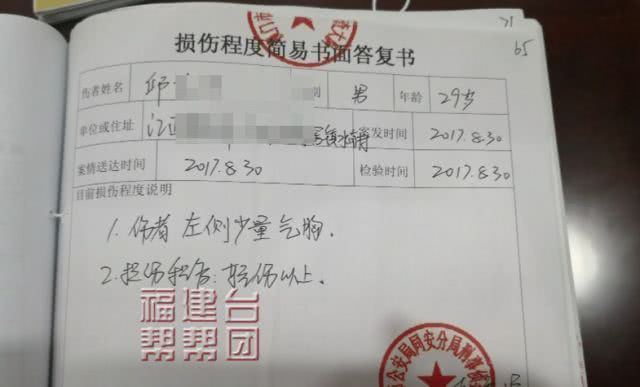 21
65
损伤程度简易书面答复书
伤者姓名 邱 别 男 年龄 29岁
单位或住址 江 镇 案发时间 2017.8.30
案情送达时间 2017.8.30 检验时间 2017.8.30
目前损伤程度说明
1. 伤者 左侧少量气胸.
2. 损伤程度: 轻伤以上.
福建台
帮帮团
公安局同安分局刑事侦